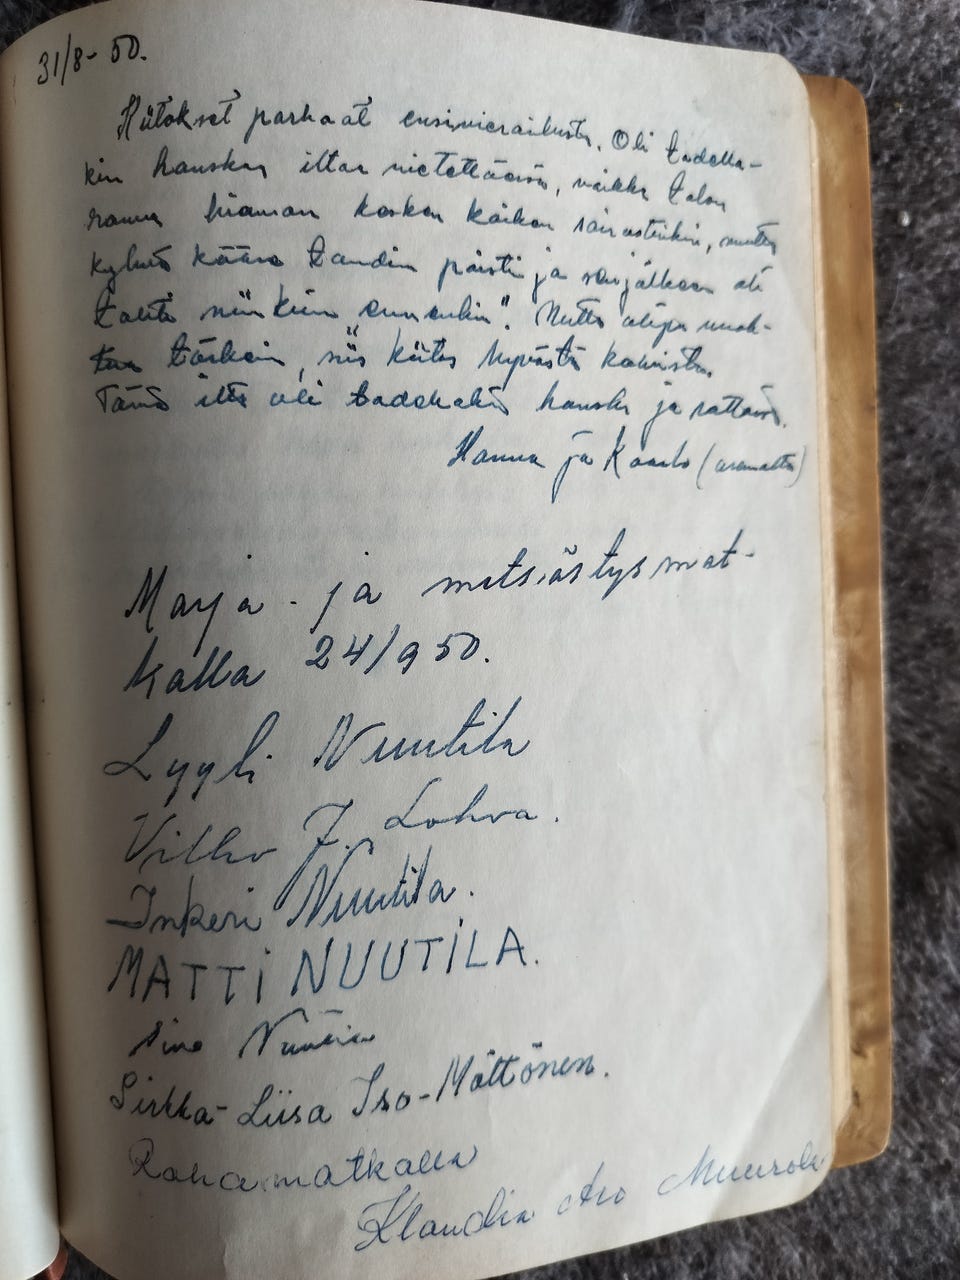 31/8- 50.
Kiitokset parhaat ensivierailusta. Oli todella-
kin hauska iltaa vietettäessä, vaikka talon
rouva hieman kosken sairastuikin, mutta
kääre tandin poisti ja sen jälkeen oli
"niinkuin ennenkin". Mutta olipa
tärkein, siis kiitos hyvästä kahvista.
Tämä ilta oli todellakin hauska ja rattoisa.
Hanna ja Kaarlo
Marja- ja metsästysmat-
kalla 24/9 50.
Lyyli Nuutila
Vilho J. Lohva.
Inkeri Nuutila.
MATTI NUUTILA.
Aino
Sirkka-Liisa Iso-Möttönen.
Rahamatkalla
Klaudia Aro Muurola